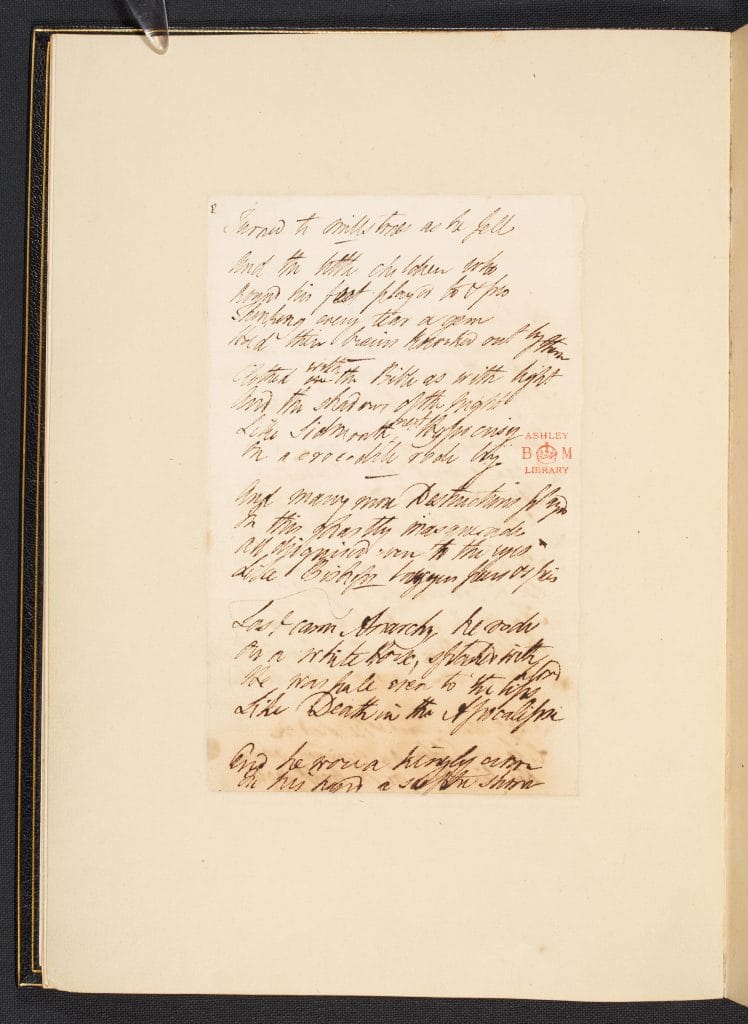 Turned to millstones as he fell
And the little children who
Round his feet played to & fro
Thinking every tear a gem
Had their brains knocked out by them
Clothed with the Bible as with light
And the shadows of the night
Like Sidmouth, next Hypocrisy
On a crocodile rode by.
And many more Destructions played
In this ghastly masquerade
All disguised even to the eyes
Like Bishops lawyers peers or spies
Last came Anarchy, he rode
On a white horse, splashed with blood
He was pale even to the lips
Like Death in the Apocalipse
And he wore a kingly crown
In his hand a sceptre shone
ASHLEY
B M
LIBRARY